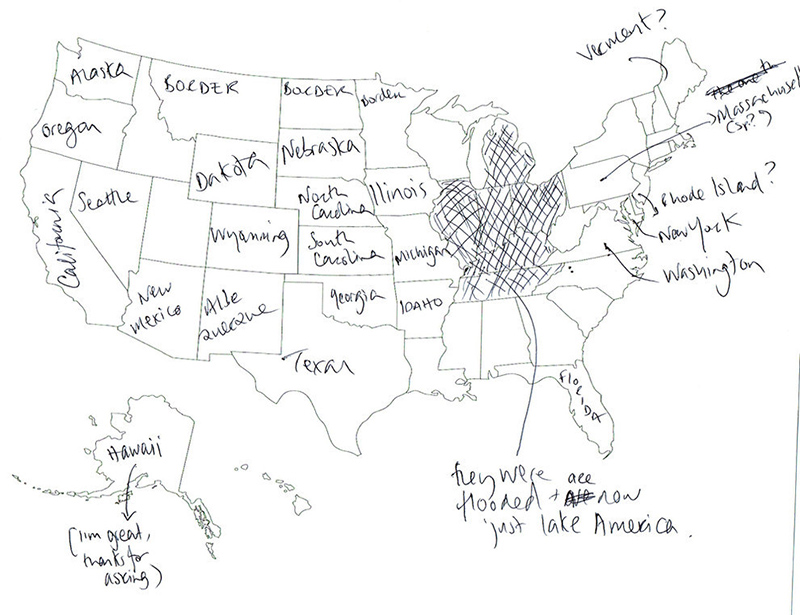 Vermont?
Alaska
BORDER
BORDER
Border
Massachusets
(sp??)
Oregon
Dakota
Nebraska
California
Seattle
North
Carolina
Illinois
Rhode Island?
New York
Wyoming
South
Carolina
Michigan
Washington
New
mexico
Albe
querque
Georgia
IDAHO
Texan
FloriDA
Hawaii
(I'm great,
thanks for
asking)
they were
flooded + are now
just lake America.